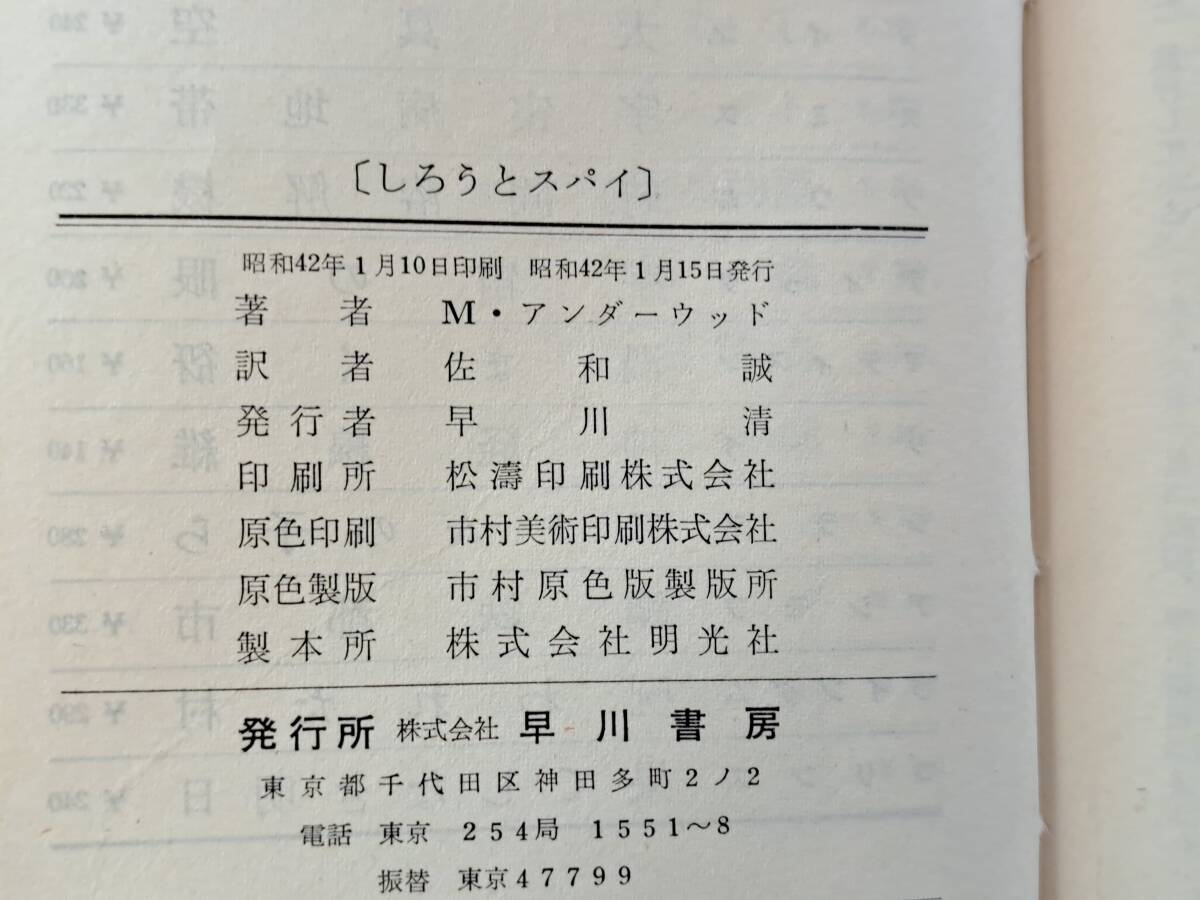 〔しろうとスパイ〕
昭和42年1月10日印刷 昭和42年1月15日発行
著者 M・アンダーウッド
訳者 佐和誠
発行者 早川清
印刷所 松濤印刷株式会社
原色印刷 市村美術印刷株式会社
原色製版 市村原色版製版所
製本所 株式会社明光社
発行所 株式会社 早川書房
東京都千代田区神田多町2ノ2
電話 東京 254局 1551〜8
振替 東京47799